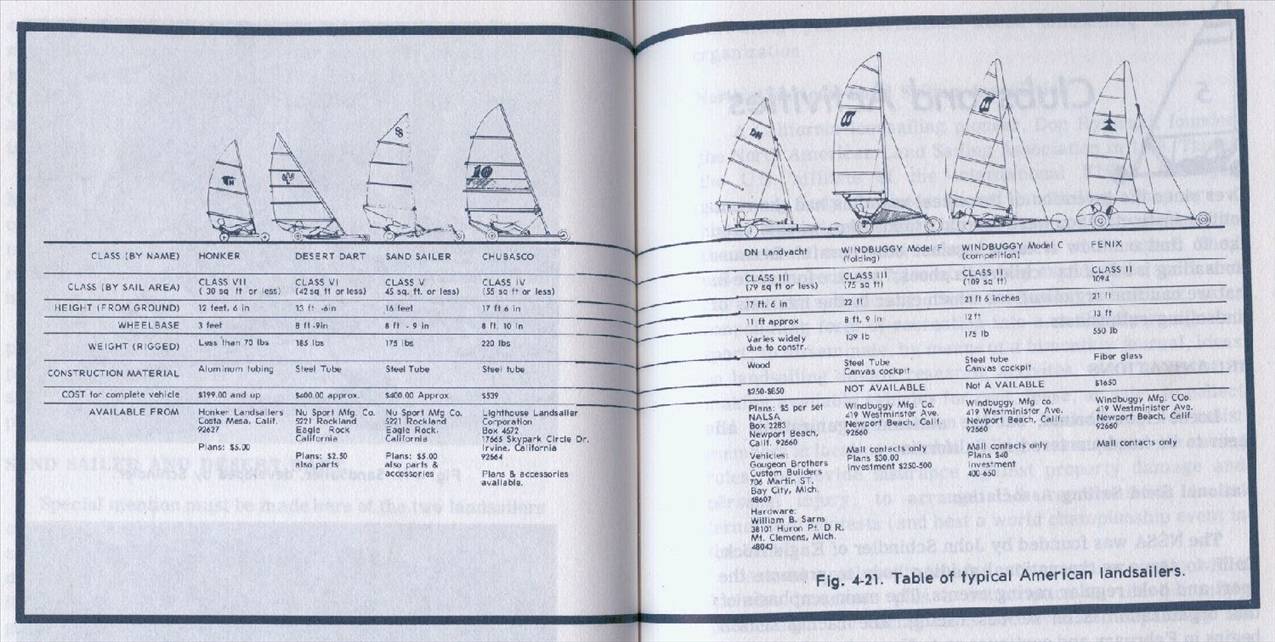 CLASS (BY NAME) HONKER DESERT DART SAND SAILER CHUBASCO DN Landyacht WINDBUGGY Model F WINDBUGGY Model C FENIX
(folding) (competition)
CLASS (BY SAIL AREA) CLASS VII CLASS VI CLASS V CLASS IV CLASS III CLASS III CLASS II CLASS II
( 30 sq ft or less) (42 sq ft or less) 45 sq. ft. or less) (55 sq ft or less) (79 sq ft or less) (75 sq ft) (109 sq ft) 109±
HEIGHT (FROM GROUND) 12 feet, 6 in 13 ft -6in 16 feet 17 ft 6 in 17 ft. 6 in 22 ft 21 ft 6 inches 21 ft
WHEELBASE 3 feet 8 ft -9in 8 ft - 9 in 8 ft. 10 in 11 ft approx 8 ft, 9 in 12 ft 13 ft
WEIGHT (RIGGED) Less than 70 lbs 185 lbs 175 lbs 220 lbs Varies widely 139 lb 175 lb 550 lb
due to constr.
CONSTRUCTION MATERIAL Aluminum tubing Steel Tube Steel Tube Steel tube Wood Steel Tube Steel tube Fiber glass
Canvas cockpit Canvas cockpit
COST for complete vehicle $199.00 and up $400.00 approx. $400.00 Approx. $539 $250-$650 NOT AVAILABLE Not A VAILABLE $1650
AVAILABLE FROM
Honker Landsailers
Costa Mesa, Calif.
92627
Plans: $5.00
Nu Sport Mfg. Co.
5221 Rockland
Eagle Rock
California
Plans: $2.50
also parts
Nu Sport Mfg. Co.
5221 Rockland
Eagle Rock.
California
Plans: $5.00
also parts &
accessories
Lighthouse Landsailer
Corporation
Box 4572
17665 Skypark Circle Dr.
Irvine, California
92664
Plans & accessories
available.
Plans: $5 per set
NALSA
Box 2283
Newport Beach,
Calif. 92660
Vehicles:
Gougeon Brothers
Custom Builders
706 Martin ST.
Bay City, Mich.
48607
Hardware:
William B. Sarns
38101 Huron Pt. D R.
Mt. Clement, Mich.
48043
Windbuggy Mfg. Co.
419 Westminster Ave.
Newport Beach, Calif.
92660
Mail contacts only
Plans $30.00
Investment $250-500
Windbuggy Mfg. co.
419 Westminister Ave.
Newport Beach, Calif.
92660
Mail contacts only
Plans $40
Investment
400 650
Windbuggy Mfg. CCo.
419 Westminister Ave.
Newport Beach, Calif.
92660
Mail contacts only
Fig. 4-21. Table of typical American landsailers.